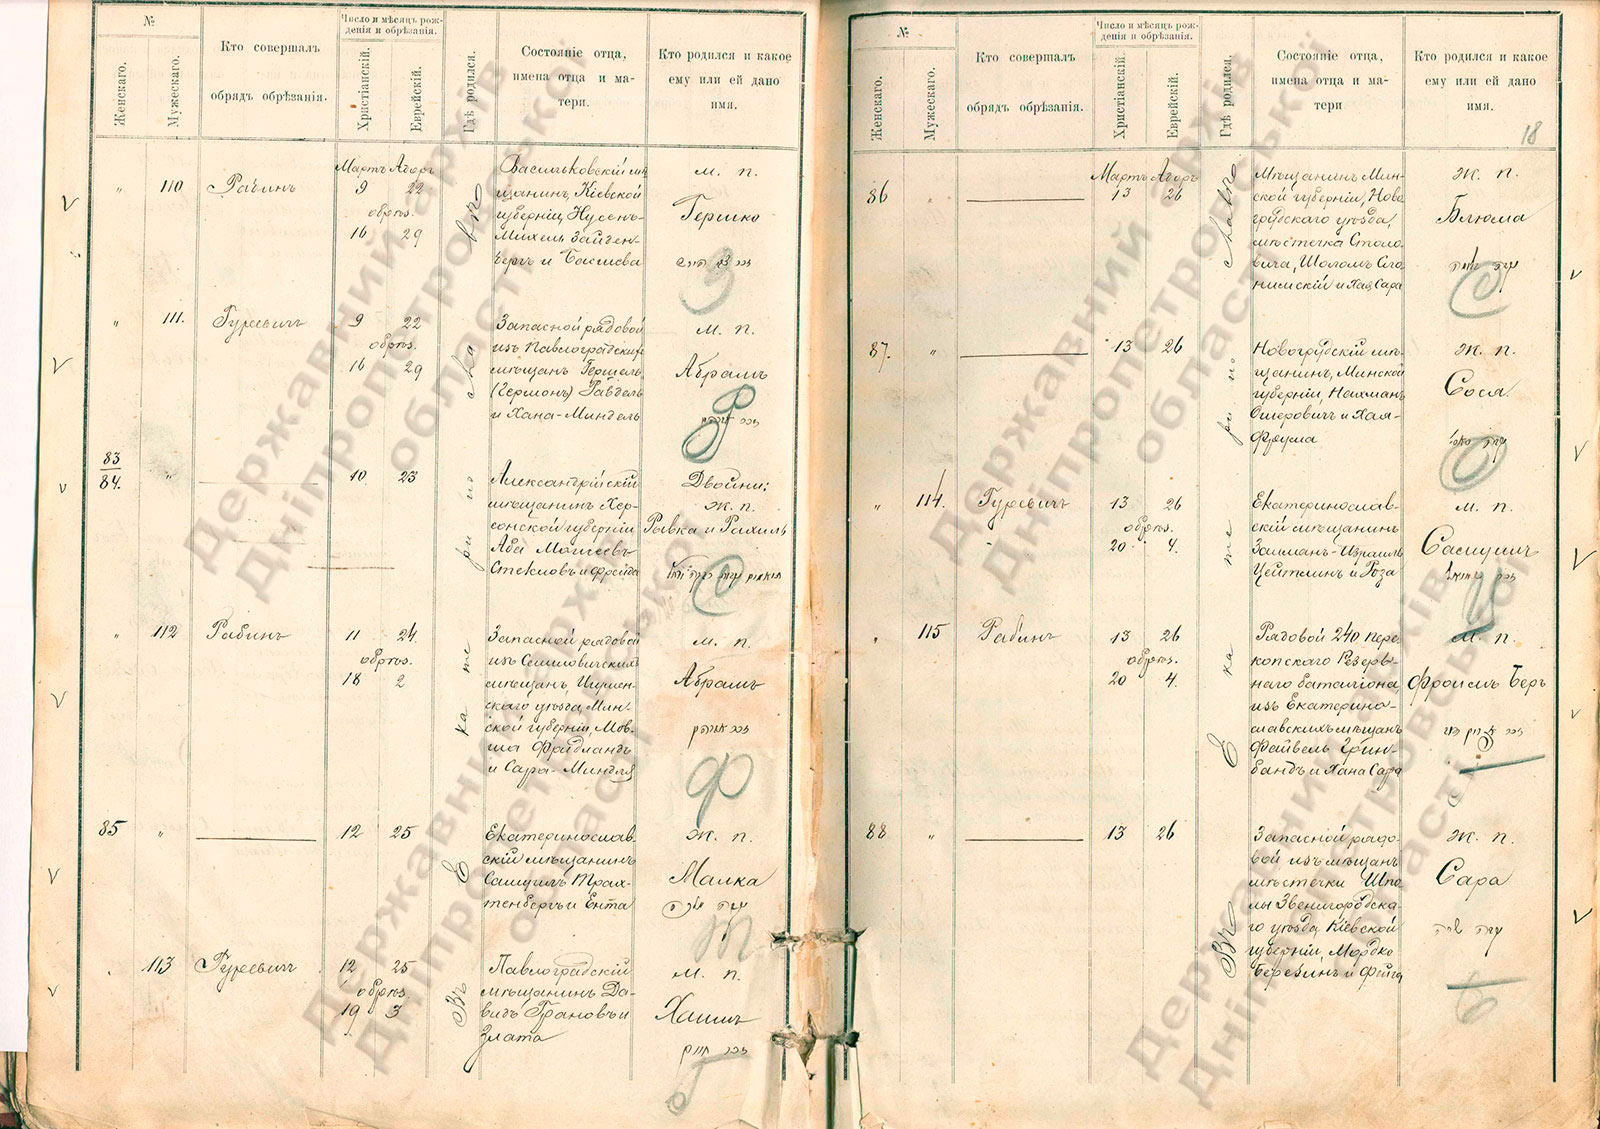 №
Женскаго.
Мужескаго.
Кто совершалъ
обрядъ обрѣзанія.
Число и мѣсяцъ рож-
денія и обрѣзанія.
Христіанскій.
Еврейскій.
Гдѣ родился.
Состояніе отца,
имена отца и ма-
тери.
Кто родился и какое
ему или ей дано
имя.
Мартъ Адаръ
" 110 Рабинъ 9 22
обрѣз.
16 29
Васильковскій мѣ-
щанинъ, Кіевской
губерніи, Нусенъ-
Михель Зайден-
бергъ и Басшева
м. п.
Гершко
" 111. Гуревичъ 9 22
обрѣз.
16 29
Запасной рядовой
изъ Павлоградскихъ
мѣщанъ Гершель
и Хана-Миндель
м. п.
Абрамъ
83
84. " 10 23
Александрійскій
мѣщанинъ Хер-
сонской губерніи
Аба Мошеевъ
Стекловъ и Фрейда
Двойни:
ж. п.
Ривка и Рахиль
" 112 Рабинъ 11 24.
обрѣз.
18 2
Запасной рядовой
изъ
мѣщанъ, Игумен-
скаго уѣзда, Мин-
ской губерніи, Мов-
ша Фридландъ
и Сара-Миндля
м. п.
Абрамъ
85 " 12 25
Екатеринослав-
скій мѣщанинъ
Самуилъ Трах-
тенбергъ и Ента
ж. п.
Малка
113 Гуревичъ 12 25
обрѣз.
19 3
Павлоградскій
мѣщанинъ Да-
видъ Грановъ и
Злата
м. п.
Хаимъ
Въ Екатеринославѣ
№
Женскаго.
Мужескаго.
Кто совершалъ
обрядъ обрѣзанія.
Число и мѣсяцъ рож-
денія и обрѣзанія.
Христіанскій.
Еврейскій.
Гдѣ родился.
Состояніе отца,
имена отца и ма-
тери
Кто родился и какое
ему или ей дано
имя.
18
Мартъ Адаръ
86 " 13 26
Мѣщанинъ Мин-
ской губерніи, Ново-
грудскаго уѣзда,
мѣстечка Столо-
вича, Шоломъ Сло-
нимскій и Хая Сара
ж. п.
Блюма
87. " 13 26
Новогрудскій мѣ-
щанинъ, Минской
губерніи, Нахманъ
Ошеровичъ и Хая-
Фрума
ж. п.
Сося.
" 114. Гуревичъ 13 26
обрѣз.
20 4.
Екатеринослав-
скій мѣщанинъ
Залманъ-Израиль
Цейтлинъ и Роза
м. п.
Самуилъ
" 115 Рабинъ 13 26
обрѣз.
20 4.
Рядовой 240 Пере-
копскаго Резерв-
наго баталіона,
изъ Екатерино-
славскихъ мѣщанъ
Файвель Грин-
бандъ и Хана Сара
м. п.
Фроимъ Беръ
88 " 13 26
Запасной рядо-
вой изъ мѣщанъ
мѣстечки Шпо-
лы Звенигородска-
го уѣзда Кіевской
губерніи, Мордко
Березинъ и Фейга
ж. п.
Сара
Въ Екатеринославѣ
Державний архів
Дніпропетровської
області